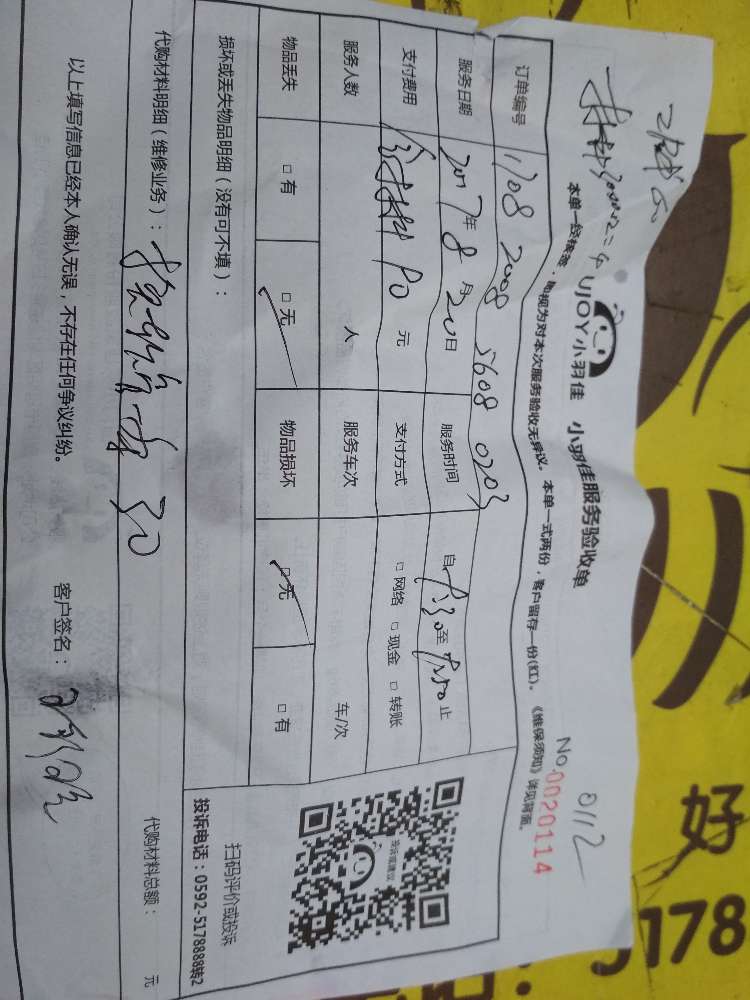 0112
UJOY小羽佳 小羽佳服务验收单
No.0020114
本单一经核准，则视为对本次服务验收无异议。本单一式两份，客户留存一份(红)。《维保须知》详见背面。
订单编号 1708 2008 5608 0203
服务日期 2017年8月20日 服务时间 自 9:30 至 9:50 止
支付费用 90 元 支付方式 □网络 □现金 □转账
服务人数 人 服务车次 车/次
物品丢失 □有 □无 物品损坏 □无 □有
损坏或丢失物品明细（没有可不填）：
扫码评价或投诉
投诉电话：0592-5178888转2
代购材料明细（维修业务）： 30 代购材料总额： 元
以上填写信息已经本人确认无误，不存在任何争议纠纷。 客户签名：
好
5178